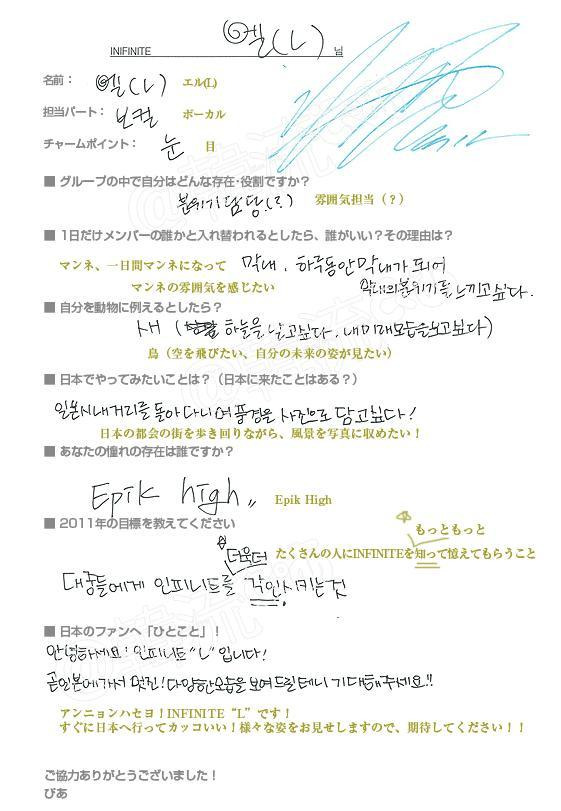 INIFINITE 엘(L) 님
名前： 엘(L) エル(L)
担当パート： 보컬 ボーカル
チャームポイント： 눈 目
■ グループの中で自分はどんな存在・役割ですか？
분위기 담당(?) 雰囲気担当（？）
■ 1日だけメンバーの誰かと入れ替われるとしたら、誰がいい？その理由は？
マンネ、一日間マンネになって 막내, 하루동안 막내가 되어
マンネの雰囲気を感じたい 막내의 분위기를 느끼고싶다.
■ 自分を動物に例えるとしたら？
새 ( 하늘을 날고싶다. 내 미래모습을보고싶다)
鳥（空を飛びたい、自分の未来の姿が見たい）
■ 日本でやってみたいことは？（日本に来たことはある？）
일본시내거리를 돌아다니며 풍경을 사진으로 담고싶다!
日本の都会の街を歩き回りながら、風景を写真に収めたい！
■ あなたの憧れの存在は誰ですか？
Epik high,, Epik High
■ 2011年の目標を教えてください
もっともっと
더욱더 たくさんの人にINFINITEを知って憶えてもらうこと
대중들에게 인피니트를 각인시키는것
■ 日本のファンへ「ひとこと」！
안녕하세요! 인피니트 "L" 입니다!
곧일본에가서 멋진! 다양한모습을 보여드릴테니 기대해주세요!!
アンニョンハセヨ！INFINITE“L”です！
すぐに日本へ行ってカッコいい！様々な姿をお見せしますので、期待してください！！
ご協力ありがとうございました！
ぴあ